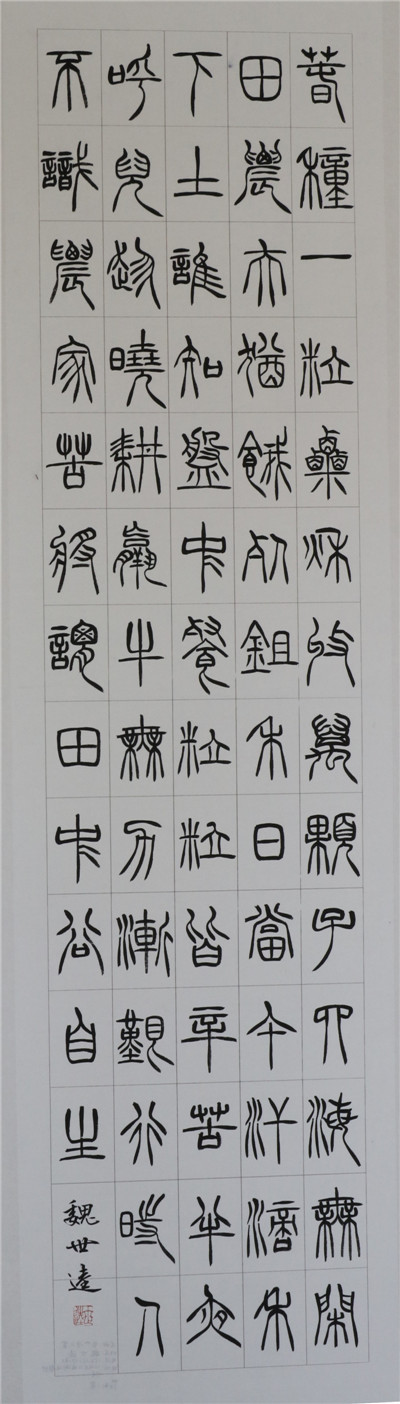 春種一粒粟秋收萬顆子四海無閑
田農夫猶餓死鉏禾日當午汗滴禾
下土誰知盤中餐粒粒皆辛苦半夜
呼兒趁曉耕羸牛無力漸艱行時人
不識農家苦將謂田中穀自生
魏世遠